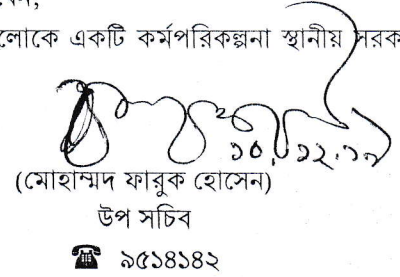 লোকে একটি কর্মপরিকল্পনা স্থানীয় সরক
১০.১২.১৭
(মোহাম্মদ ফারুক হোসেন)
উপ সচিব
☎ ৯৫১৪১৪২